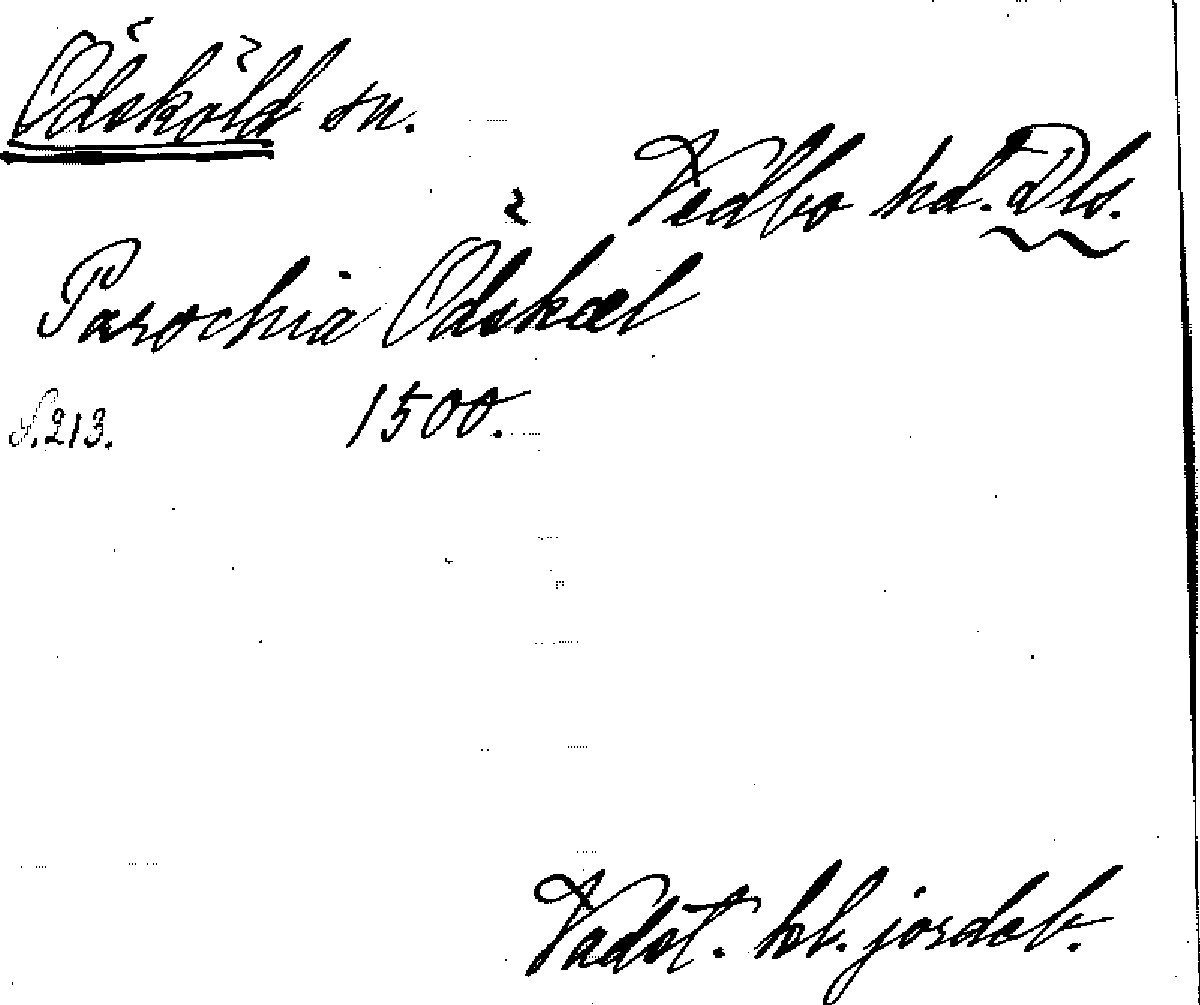 Ödsköld sn.
Vedbo hd. Dls.
Parochia Ödskæl
S. 213. 1500.
Vadst. kl. jordeb.